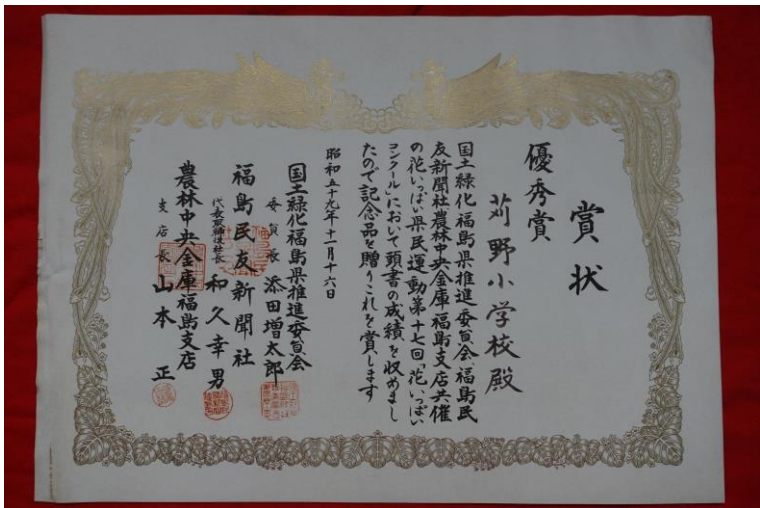 賞状
優秀賞
苅野小学校殿
国土緑化福島県推進委員会、福島民
友新聞社農林中央金庫福島支店共催
の花いっぱい県民運動第十七回「花いっぱい
コンクール」において頭書の成績を収めまし
たので記念品を贈りこれを賞します
昭和五十九年十一月十六日
国土緑化福島県推進委員会
委員長 添田増太郎
福島民友新聞社
代表取締役社長 和久幸男
農林中央金庫福島支店
支店長 山本正